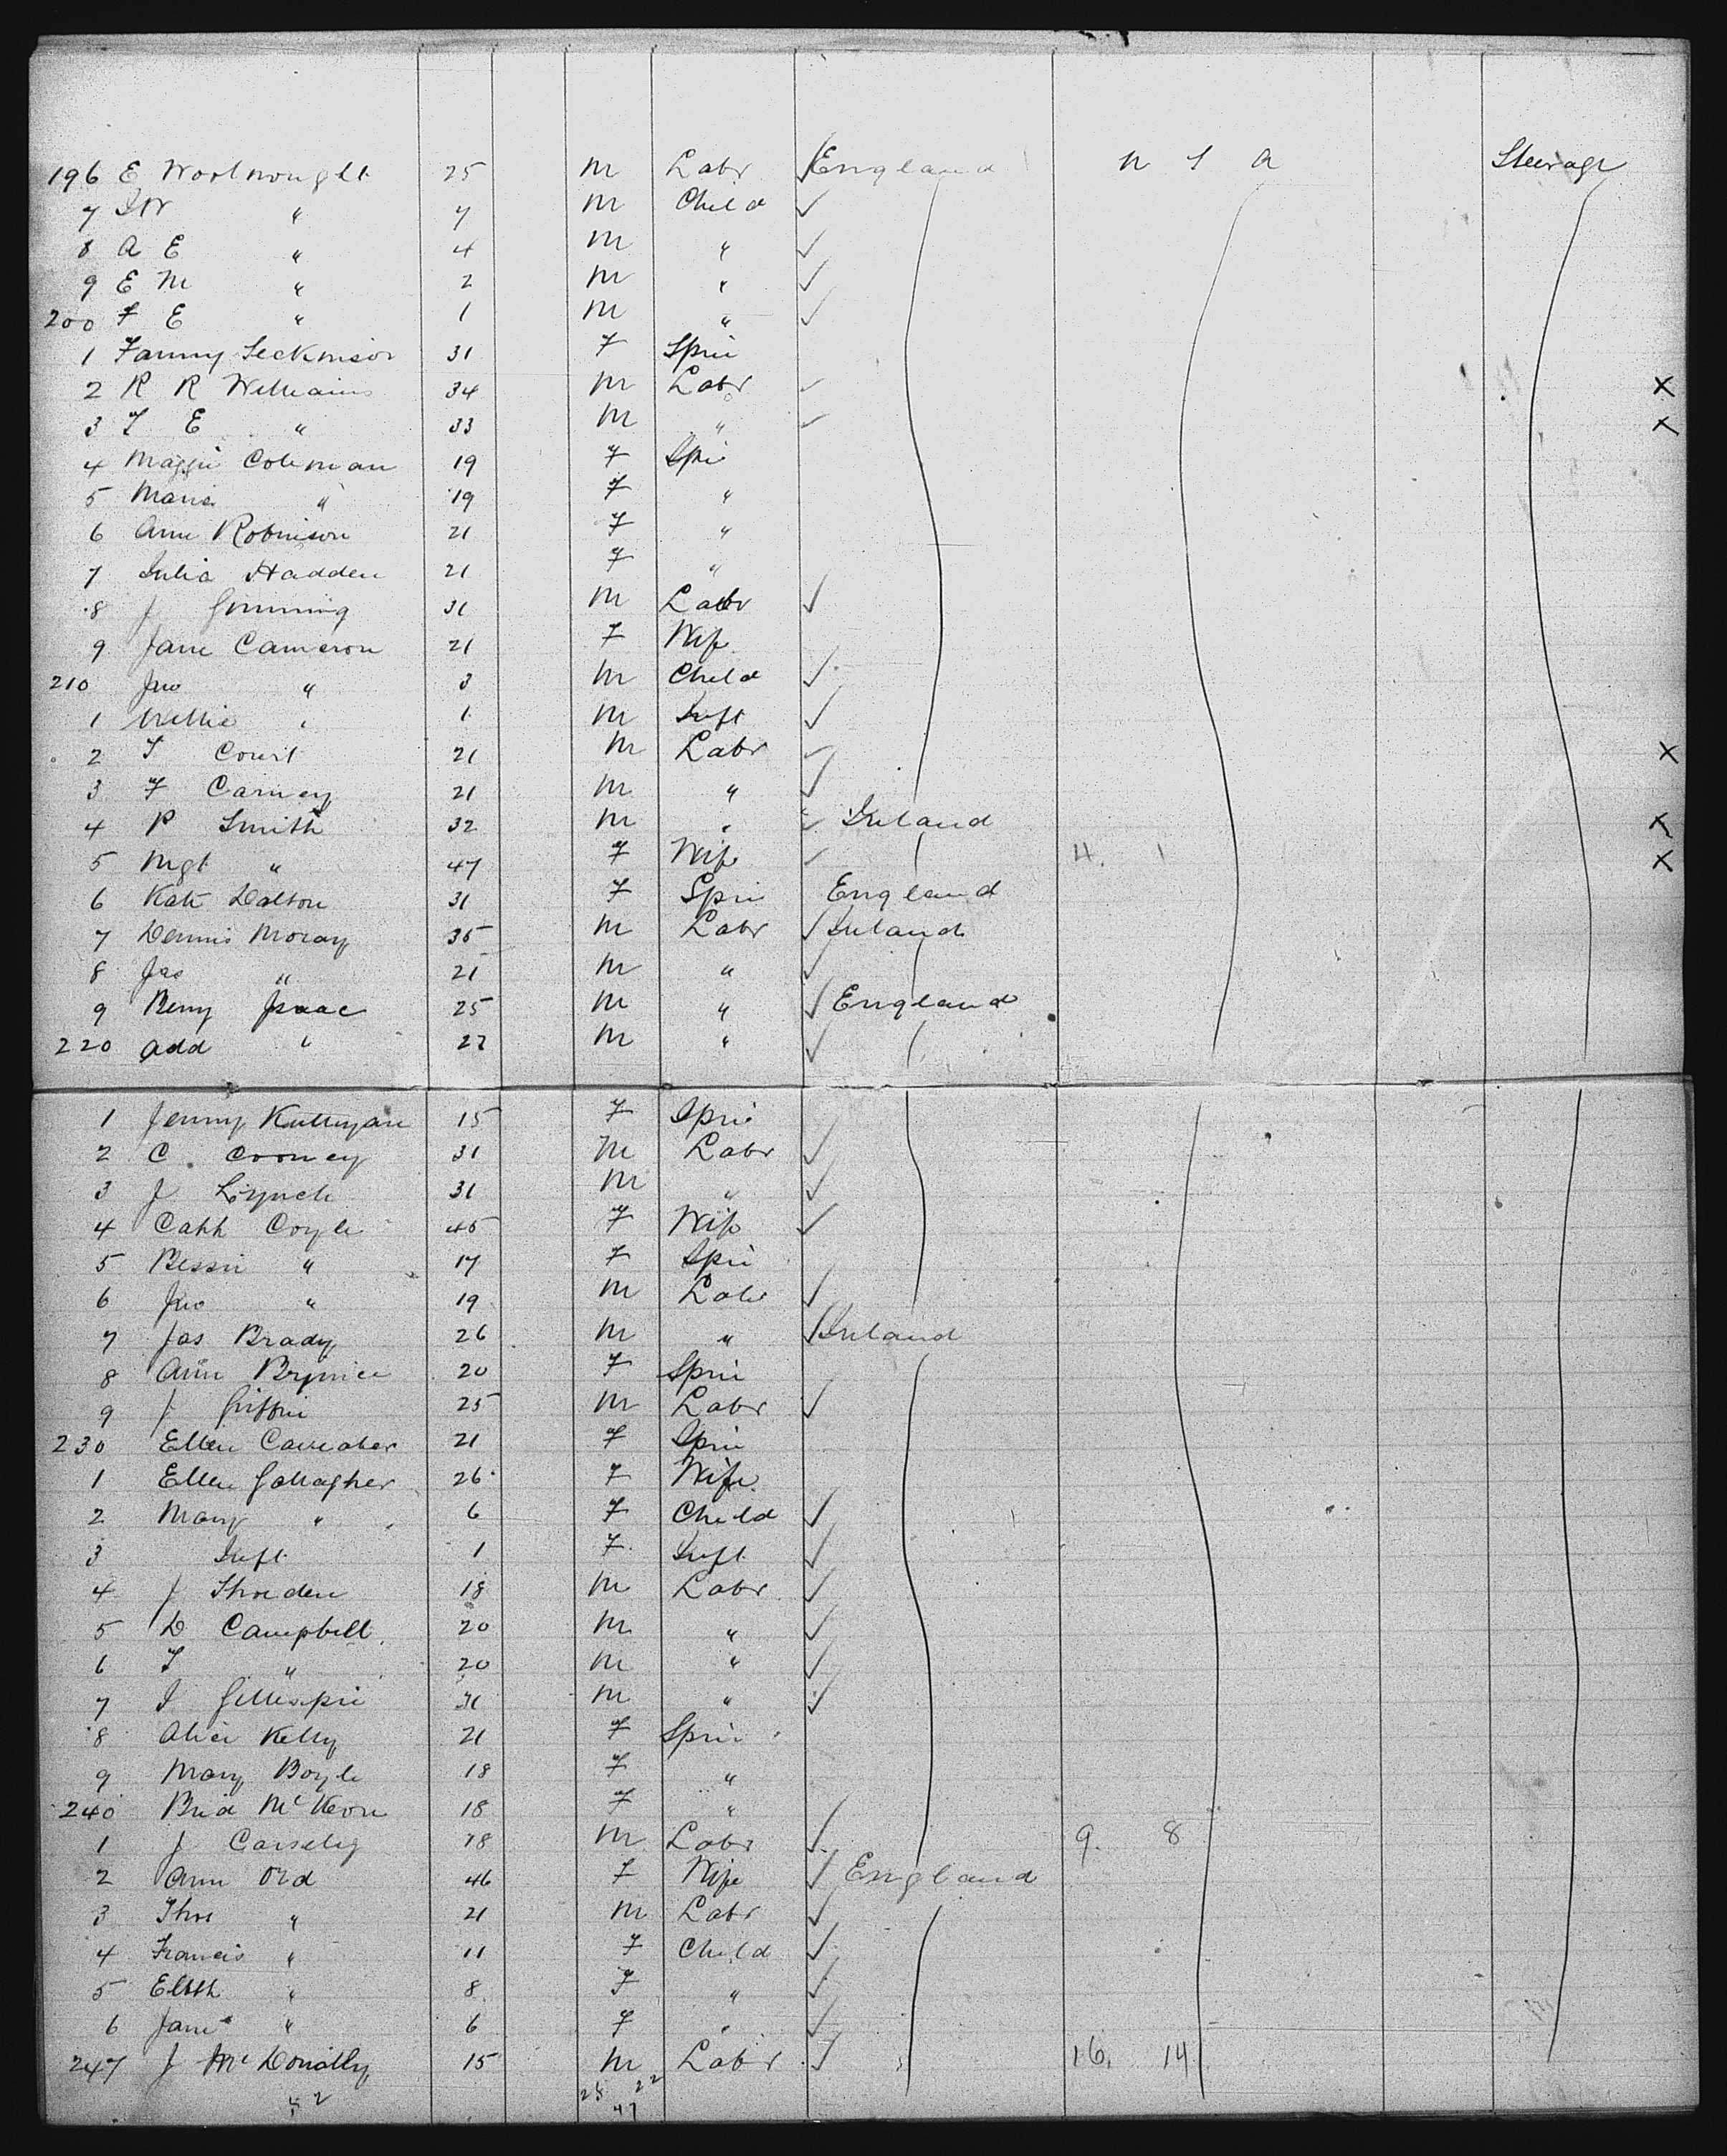 196 E Woolnought 25 m Labr √ England n S a Steerage
7 JW " 7 m Child √
8 A E " 4 m " √
9 E M " 2 m " √
200 F E " 1 m " √
1 Fanny 31 F Spin
2 R R Williams 34 m Labr √ X
3 T E " 33 m " √ X
4 Maggie Coleman 19 F Spi
5 Maria " 19 F "
6 Ann Robinson 21 F "
7 Julia Hadden 21 F "
8 J Gimming 31 m Labr √
9 Jane Cameron 21 F Wife
210 Jno " 3 m Child √
1 Willie " 1 m Inft √
2 T Court 21 m Labr √ X
3 F Carney 21 m " √
4 P Smith 32 m " √ Ireland X
5 Mgt " 47 F Wife √ 4. 1 X
6 Kate Dalton 31 F Spin England
7 Dennis Moray 35 m Labr √ Ireland
8 Jas " 21 m " √
9 Benj Isaac 25 m " √ England
220 Add " 22 m " √
1 Jenny 15 F Spin
2 C. Cooney 31 m Labr √
3 J Lynch 31 m " √
4 Cath Coyle 45 F Wife √
5 Bessie " 17 F Spin
6 Jno " 19 m Labr √
7 Jas Brady 26 m " √ Ireland
8 Ann 20 F Spin
9 J Griffin 25 m Labr √
230 Ellen 21 F Spin
1 Ellen Gallagher 26 F Wife
2 Mary " 6 F Child √
3 Inft 1 F Inft √
4 J 18 m Labr √
5 D Campbell 20 m " √
6 T " 20 m " √
7 J Gillespie 31 m " √
8 Alice Kelly 21 F Spin
9 Mary Boyle 18 F "
240 Brid McKeon 18 F "
1 J 18 m Labr √ 9. 8
2 Ann Ord 46 F Wife √ England
3 Thos " 21 m Labr √
4 Francis " 11 F Child √
5 Elbth " 8 F " √
6 Jane " 6 F " √
247 J McDonally 15 m Labr √ 16. 14
52 25 22
47